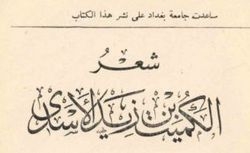 ساعدت جامعة بغداد على نشر هذا الكتاب
شعر
الكميت بن زيد الأسدي